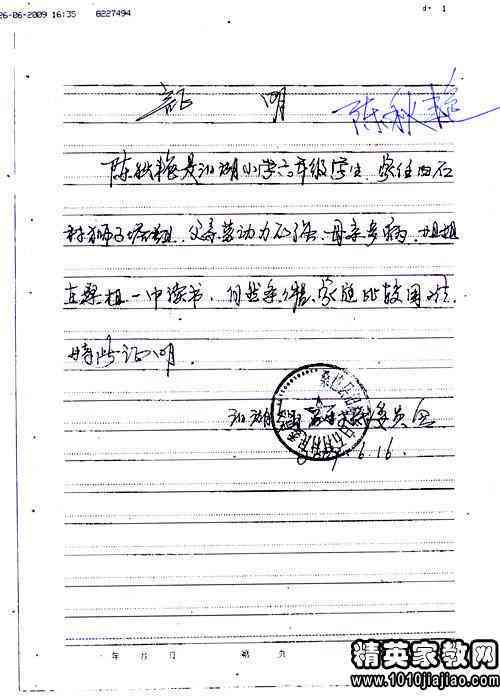 26-06-2009 16:35 8227494
证 明
陈秋艳
陈秋艳是汨湖小学六年级学生,家住白石
村狮子岩组,父亲劳动力不强,母亲多病,姐姐
在桑植一中读书,家庭比较困难。
特此证明
汨湖 委员会
6.16
年 月 日 第 页
精英家教网
www.1010jiajiao.com